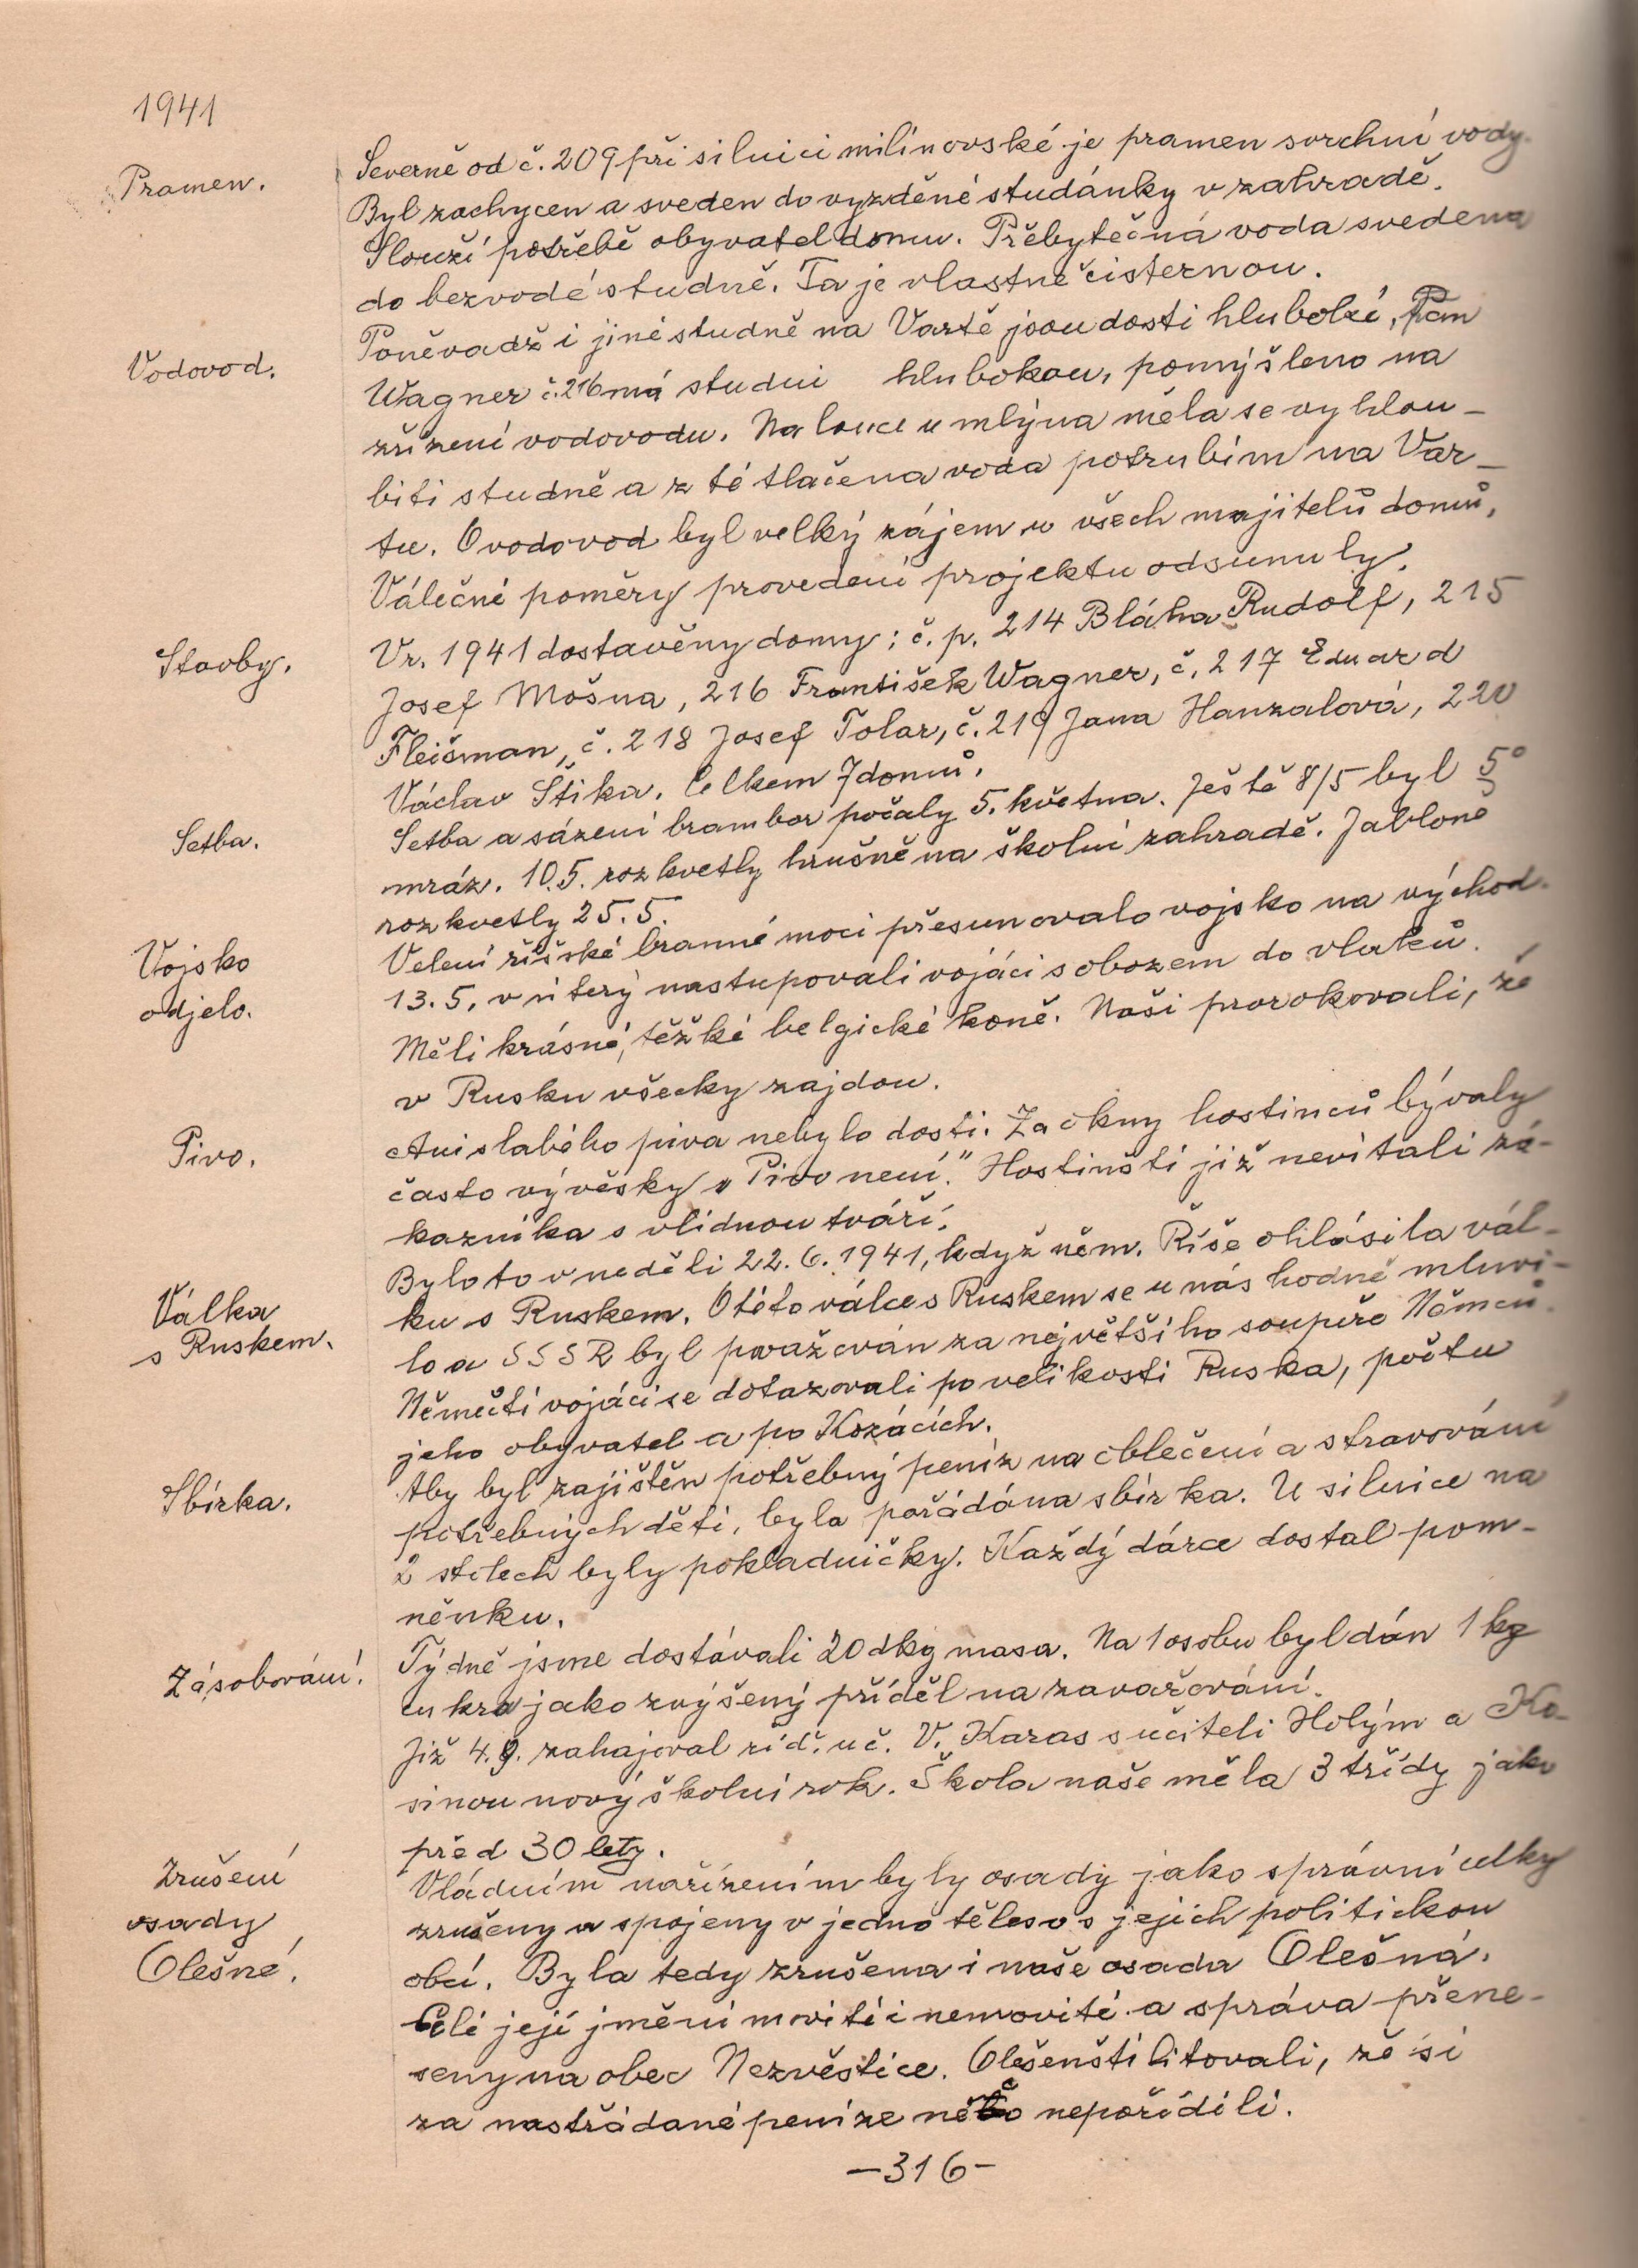 1941
Pramen.
Severně od č. 209 při silnici milínovské je pramen svrchní vody.
Byl zachycen a sveden do vyzděné studánky v zahradě.
Slouží potřebě obyvatel domu. Přebytečná voda svedena
do bezvodé studně. Ta je vlastně cisternou.
Vodovod.
Poněvadž i jiné studně na Vartě jsou dosti hluboké, pan
Wagner č. 216 má studni hlubokou, pomýšleno na
zřízení vodovodu. Na louce u mlýna měla se vyhlou-
biti studně a z té tlačena voda potrubím na Var-
tu. O vodovod byl velký zájem u všech majitelů domů.
Válečné poměry provedení projektu odsunuly.
Stavby.
V r. 1941 dostavěny domy: č. p. 214 Bláha Rudolf, 215
Josef Mošna, 216 František Wagner, č. 217 Eduard
Fleišman, č. 218 Josef Tolar, č. 219 Jana Hanzalová, 220
Václav Štika. Celkem 7 domů.
Setba.
Setba a sázení brambor počaly 5. května. Ještě 8/5 byl 5°
mráz. 10.5. rozkvetly hrušně na školní zahradě. Jabloně
rozkvetly 25.5.
Vojsko
odjelo.
Velení říšské branné moci přesunovalo vojsko na východ.
13.5. v úterý nastupovali vojáci s obozem do vlaků.
Měli krásné, těžké belgické koně. Naši prorokovali, že
v Rusku všecky zajdou.
Pivo.
Ani slabého piva nebylo dosti. Za okny hostinců bývaly
často vývěsky „Pivo není." Hostinští již nevítali zá-
kazníka s vlídnou tváří.
Válka
s Ruskem.
Bylo to v neděli 22.6.1941, když něm. Říše ohlásila vál-
ku s Ruskem. O této válce s Ruskem se u nás hodně mluvi-
lo a SSSR byl považován za největšího soupeře Němců.
Němečtí vojáci se dotazovali po velikosti Ruska, počtu
jeho obyvatel a po Kozácích.
Sbírka.
Aby byl zajištěn potřebný peníz na oblečení a stravování
potřebných dětí, byla pořádána sbírka. U silnice na
2 stolech byly pokladničky. Každý dárce dostal pom-
něnku.
Zásobování.
Týdně jsme dostávali 20 dkg masa. Na 1 osobu byl dán 1 kg
cukru jako zvýšený příděl na zavařování.
Již 4.9. zahajoval říd. uč. V. Karas s učiteli Holým a Ko-
sinou nový školní rok. Škola naše měla 3 třídy jako
před 30 lety.
Zrušení
osady
Olešné.
Vládním nařízením byly osady jako správní celky
zrušeny a spojeny v jedno těleso s jejich politickou
obcí. Byla tedy zrušena i naše osada Olešná.
Celé její jmění movité i nemovité a správa přene-
seny na obec Nezvěstice. Olešenští litovali, že si
za nastřádané peníze něco nepořídili.
-316-